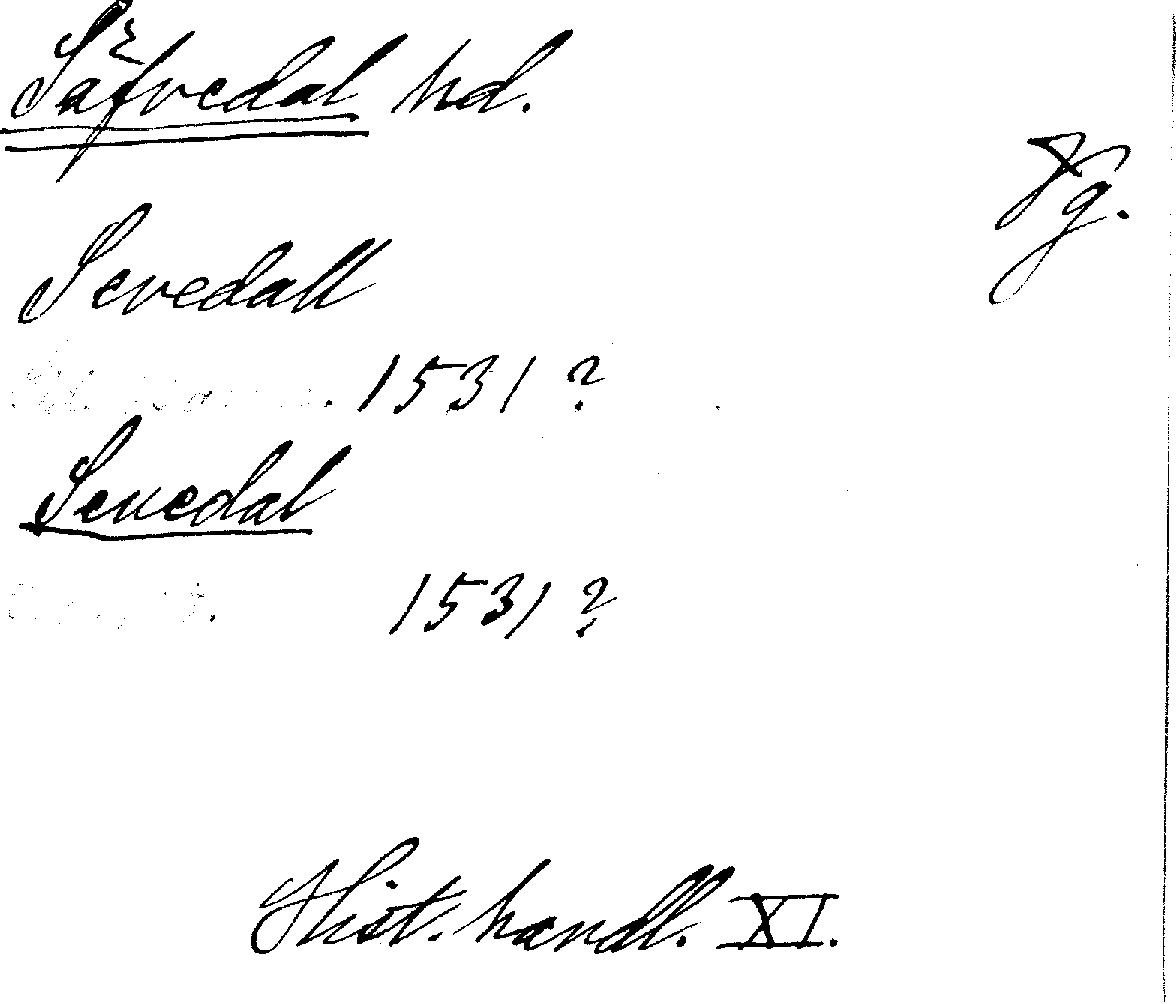 Säfvedal hd.
Vg.
Sevedall
1531?
Sevedal
1531?
Hist. handl. XI.